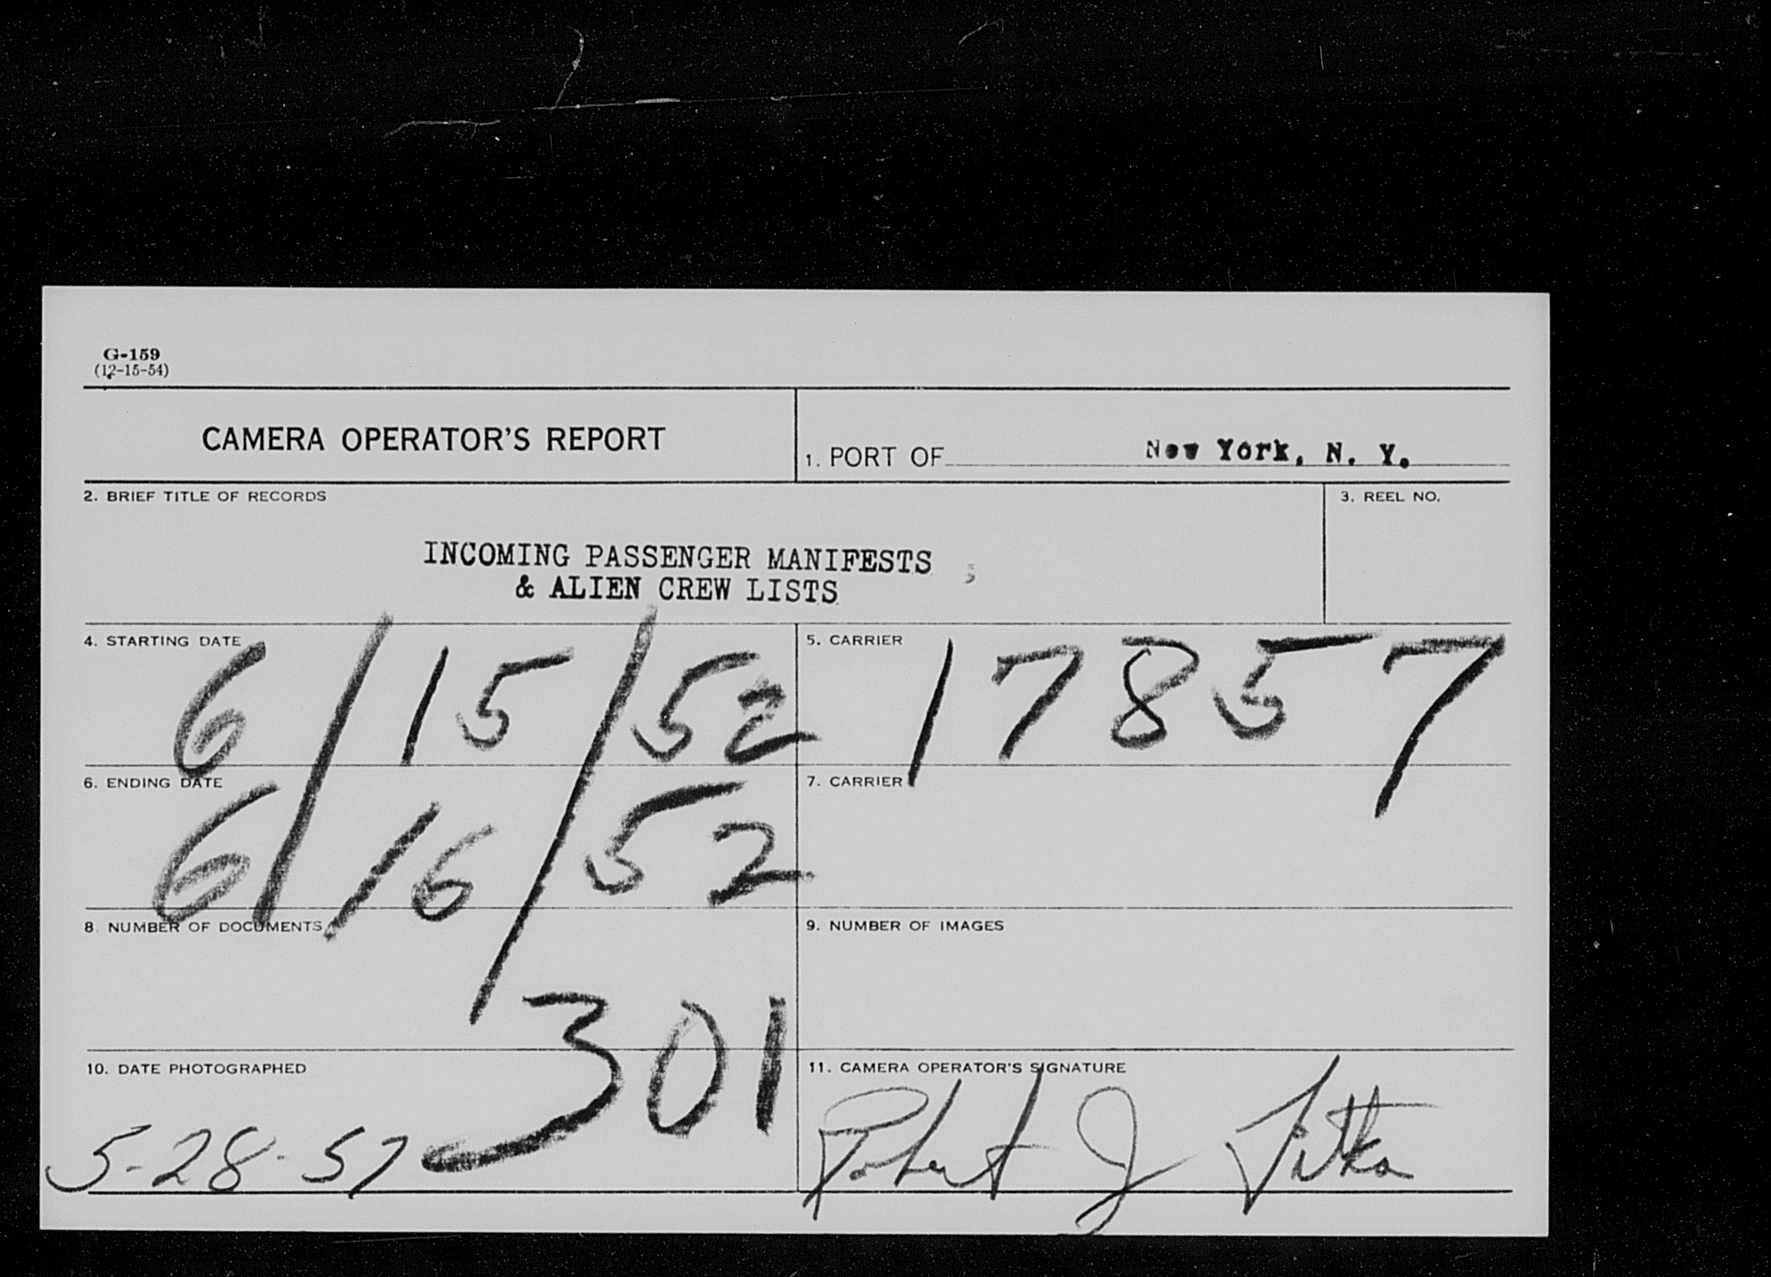 G-159
(12-15-54)
CAMERA OPERATOR'S REPORT
1. PORT OF New York, N. Y.
2. BRIEF TITLE OF RECORDS
3. REEL NO.
INCOMING PASSENGER MANIFESTS
& ALIEN CREW LISTS
4. STARTING DATE
6/15/52
5. CARRIER
17857
6. ENDING DATE
6/16/52
7. CARRIER
8. NUMBER OF DOCUMENTS
301
9. NUMBER OF IMAGES
10. DATE PHOTOGRAPHED
5-28-57
11. CAMERA OPERATOR'S SIGNATURE
Robert J